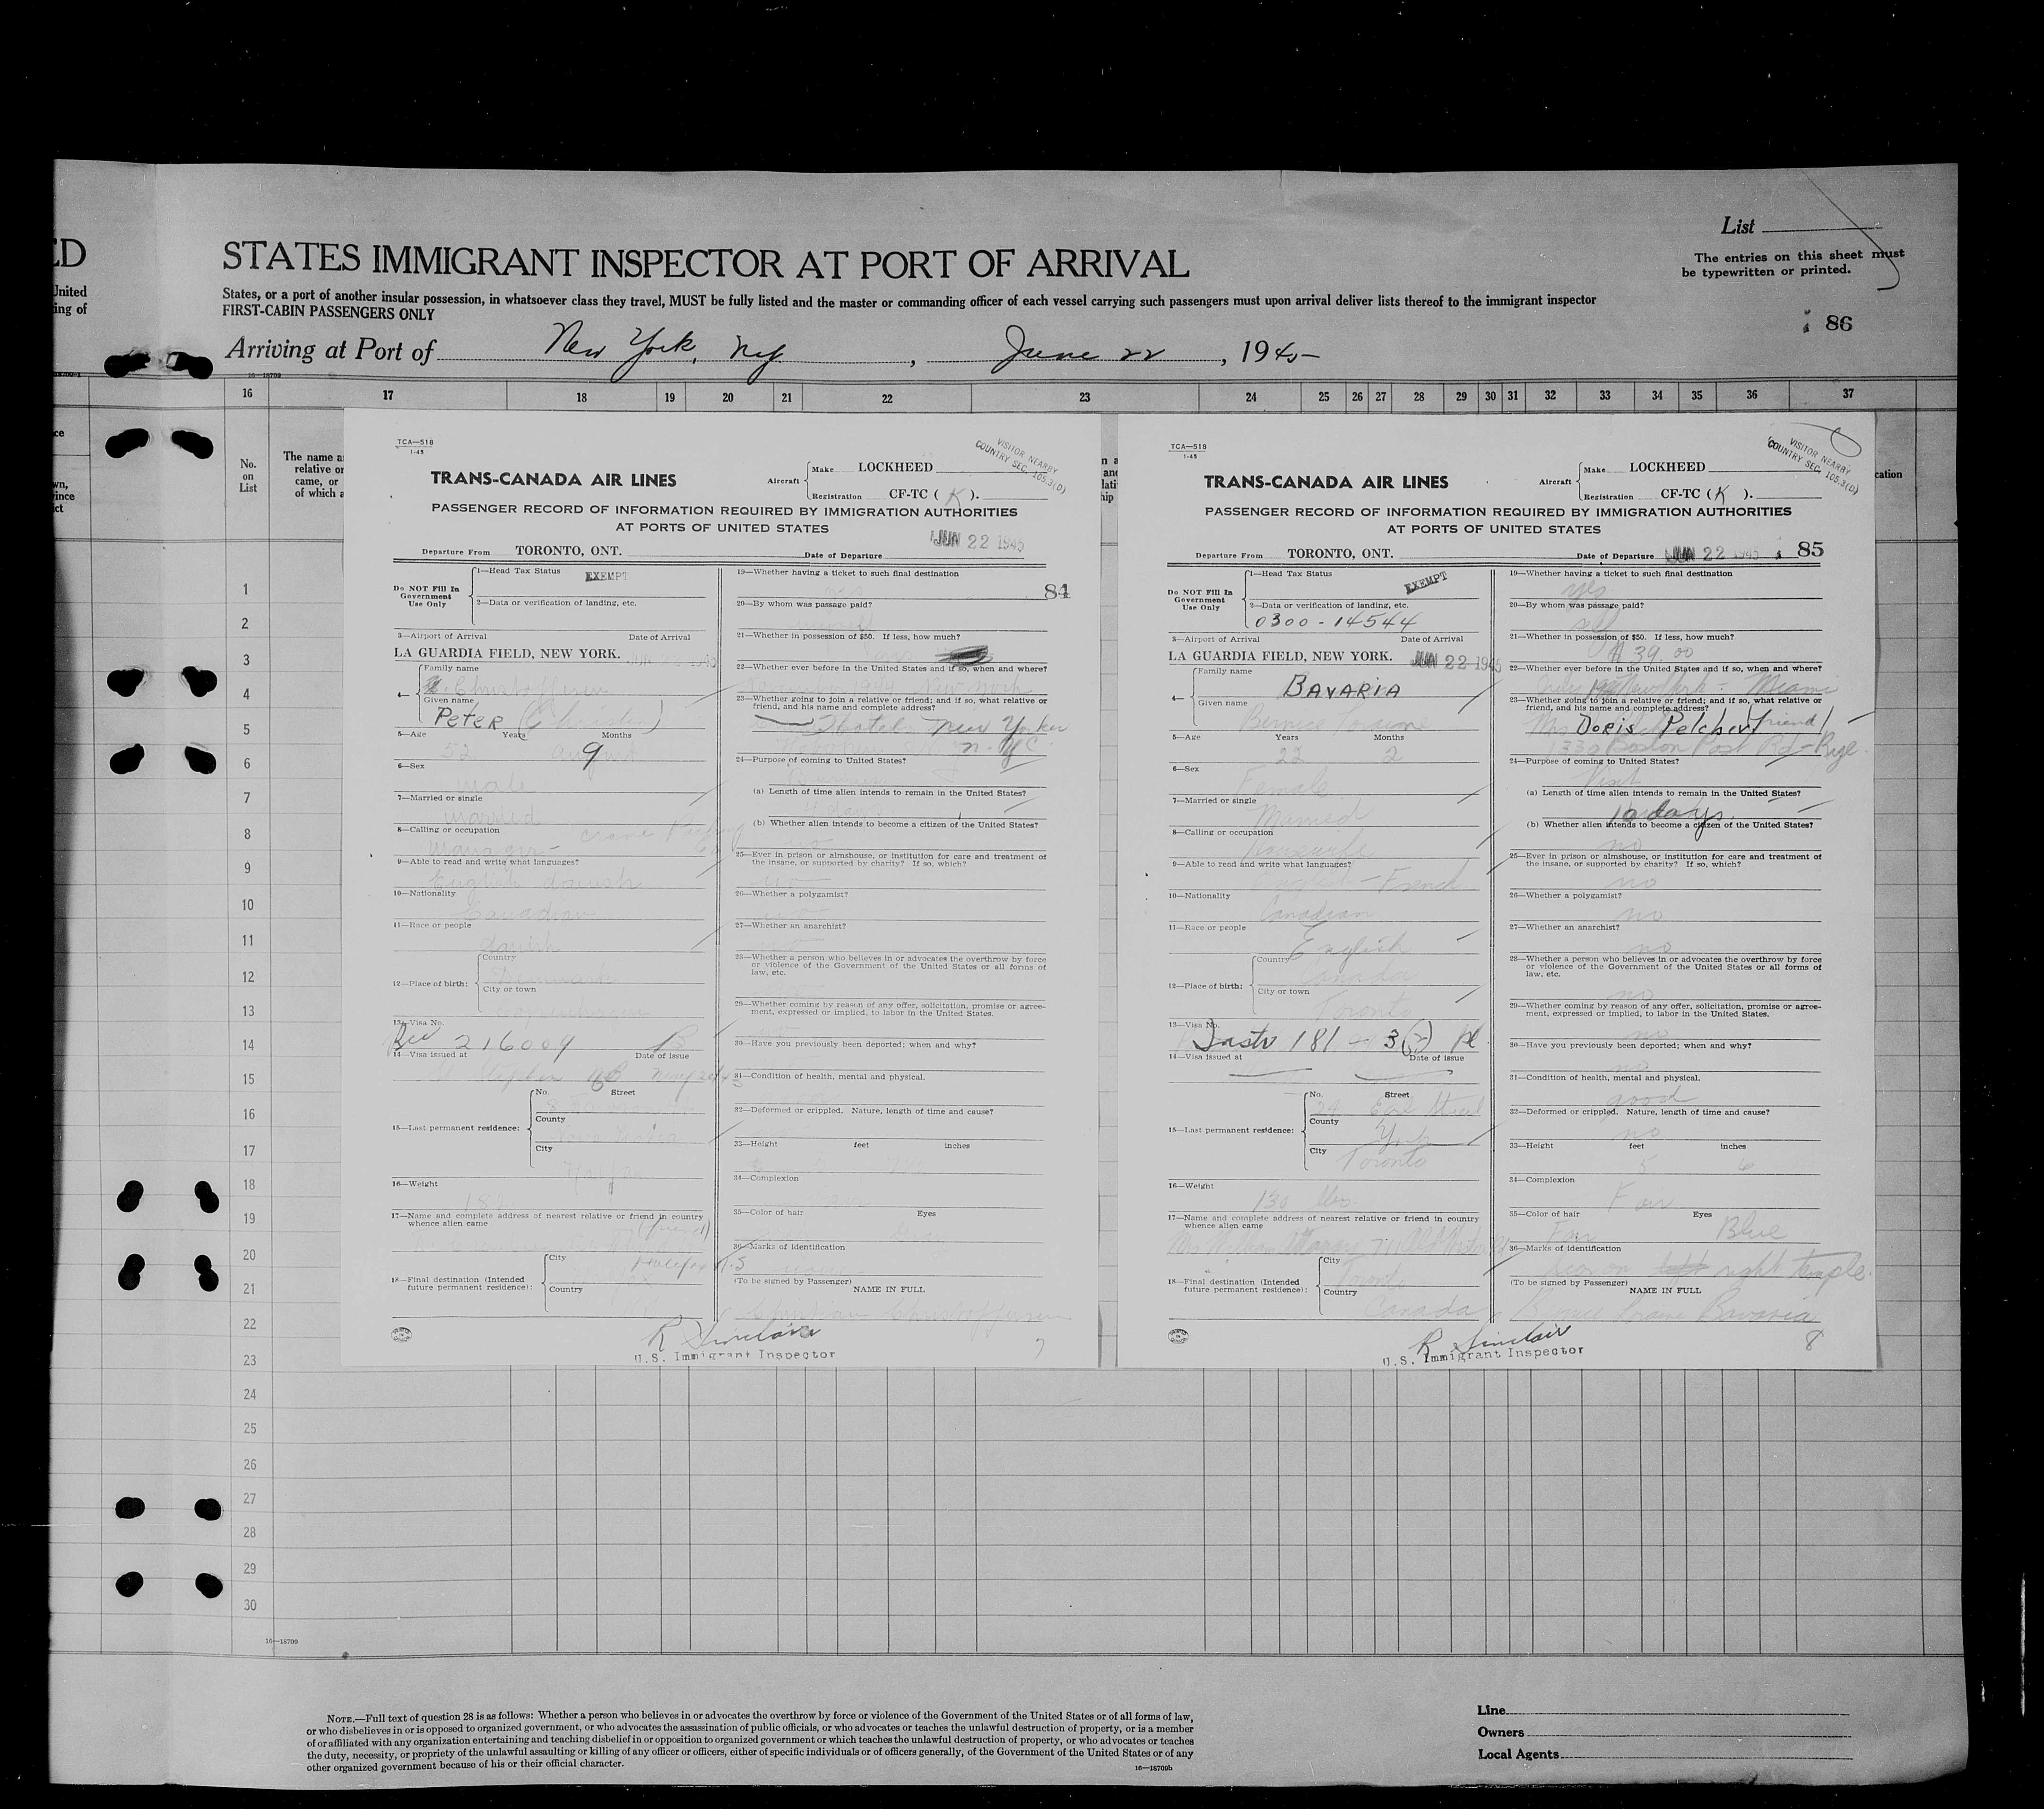 ED
United
ing of
STATES IMMIGRANT INSPECTOR AT PORT OF ARRIVAL
States, or a port of another insular possession, in whatsoever class they travel, MUST be fully listed and the master or commanding officer of each vessel carrying such passengers must upon arrival deliver lists thereof to the immigrant inspector
FIRST-CABIN PASSENGERS ONLY
List
The entries on this sheet must
be typewritten or printed.
86
Arriving at Port of New York, NY, June 22, 1945
16—18709
16 17 18 19 20 21 22 23 24 25 26 27 28 29 30 31 32 33 34 35 36 37
No.
on
List
The name a
relative or
came, or
of which a
1
2
3
4
5
6
7
8
9
10
11
12
13
14
15
16
17
18
19
20
21
22
23
24
25
26
27
28
29
30
TCA—518
1-45
TRANS-CANADA AIR LINES
Aircraft
Make LOCKHEED
Registration CF-TC (K).
VISITOR NEARBY
COUNTRY SEC. 105.3(D)
PASSENGER RECORD OF INFORMATION REQUIRED BY IMMIGRATION AUTHORITIES
AT PORTS OF UNITED STATES
Departure From TORONTO, ONT. Date of Departure JUN 22 1945
84
Do NOT Fill In
Government
Use Only
1—Head Tax Status EXEMPT
2—Data or verification of landing, etc.
3—Airport of Arrival Date of Arrival
LA GUARDIA FIELD, NEW YORK.
4—
Family name
Christoffersen
Given name
Peter (Christian)
5—Age Years Months
52 9
6—Sex
male
7—Married or single
married
8—Calling or occupation
Manager-
9—Able to read and write what languages?
English Danish
10—Nationality
Canadian
11—Race or people
Danish
12—Place of birth:
Country
Denmark
City or town
Copenhagen
13—Visa No.
216009
14—Visa issued at Date of issue
15—Last permanent residence:
No. Street
County
Nova Scotia
City
Halifax
16—Weight
17—Name and complete address of nearest relative or friend in country
whence alien came
(friend)
Halifax N.S
18—Final destination (Intended
future permanent residence):
City
Country
19—Whether having a ticket to such final destination
20—By whom was passage paid?
myself
21—Whether in possession of $50. If less, how much?
22—Whether ever before in the United States and if so, when and where?
1944 New York
23—Whether going to join a relative or friend; and if so, what relative or
friend, and his name and complete address?
Hotel New Yorker
N.Y.C.
24—Purpose of coming to United States?
(a) Length of time alien intends to remain in the United States?
(b) Whether alien intends to become a citizen of the United States?
no
25—Ever in prison or almshouse, or institution for care and treatment of
the insane, or supported by charity? If so, which?
no
26—Whether a polygamist?
no
27—Whether an anarchist?
28—Whether a person who believes in or advocates the overthrow by force
or violence of the Government of the United States or all forms of
law, etc.
29—Whether coming by reason of any offer, solicitation, promise or agree-
ment, expressed or implied, to labor in the United States.
no
30—Have you previously been deported; when and why?
31—Condition of health, mental and physical.
32—Deformed or crippled. Nature, length of time and cause?
33—Height feet inches
34—Complexion
35—Color of hair Eyes
36—Marks of identification
(To be signed by Passenger) NAME IN FULL
Christian Christoffersen
R Sinclair
U.S. Immigrant Inspector
7
TCA—518
1-45
TRANS-CANADA AIR LINES
Aircraft
Make LOCKHEED
Registration CF-TC (K).
VISITOR NEARBY
COUNTRY SEC. 105.3(D)
PASSENGER RECORD OF INFORMATION REQUIRED BY IMMIGRATION AUTHORITIES
AT PORTS OF UNITED STATES
Departure From TORONTO, ONT. Date of Departure JUN 22 1945
85
Do NOT Fill In
Government
Use Only
1—Head Tax Status EXEMPT
2—Data or verification of landing, etc.
0300-14544
3—Airport of Arrival Date of Arrival
LA GUARDIA FIELD, NEW YORK. JUN 22 1945
4—
Family name
BAVARIA
Given name
Bernice
5—Age Years Months
22 2
6—Sex
Female
7—Married or single
Married
8—Calling or occupation
Housewife
9—Able to read and write what languages?
English - French
10—Nationality
Canadian
11—Race or people
English
12—Place of birth:
Country
Canada
City or town
Toronto
13—Visa No.
Instr 181 - 3
14—Visa issued at Date of issue
15—Last permanent residence:
No. Street
Earl Street
County
York
City
Toronto
16—Weight
130 lbs.
17—Name and complete address of nearest relative or friend in country
whence alien came
18—Final destination (Intended
future permanent residence):
City
Toronto
Country
Canada
19—Whether having a ticket to such final destination
yes
20—By whom was passage paid?
self
21—Whether in possession of $50. If less, how much?
$39.00
22—Whether ever before in the United States and if so, when and where?
New York - Miami
23—Whether going to join a relative or friend; and if so, what relative or
friend, and his name and complete address?
Mrs Doris Pelchert friend
Boston Post Rd - Rye
24—Purpose of coming to United States?
Visit
(a) Length of time alien intends to remain in the United States?
10 days
(b) Whether alien intends to become a citizen of the United States?
no
25—Ever in prison or almshouse, or institution for care and treatment of
the insane, or supported by charity? If so, which?
no
26—Whether a polygamist?
no
27—Whether an anarchist?
no
28—Whether a person who believes in or advocates the overthrow by force
or violence of the Government of the United States or all forms of
law, etc.
no
29—Whether coming by reason of any offer, solicitation, promise or agree-
ment, expressed or implied, to labor in the United States.
no
30—Have you previously been deported; when and why?
no
31—Condition of health, mental and physical.
good
32—Deformed or crippled. Nature, length of time and cause?
no
33—Height feet inches
5 6
34—Complexion
Fair
35—Color of hair Eyes
Fair Blue
36—Marks of identification
right temple
(To be signed by Passenger) NAME IN FULL
Bavaria
R Sinclair
U.S. Immigrant Inspector
8
16—18709
NOTE.—Full text of question 28 is as follows: Whether a person who believes in or advocates the overthrow by force or violence of the Government of the United States or of all forms of law,
or who disbelieves in or is opposed to organized government, or who advocates the assassination of public officials, or who advocates or teaches the unlawful destruction of property, or is a member
of or affiliated with any organization entertaining and teaching disbelief in or opposition to organized government or which teaches the unlawful destruction of property, or who advocates or teaches
the duty, necessity, or propriety of the unlawful assaulting or killing of any officer or officers, either of specific individuals or of officers generally, of the Government of the United States or of any
other organized government because of his or their official character.
16—18709b
Line
Owners
Local Agents